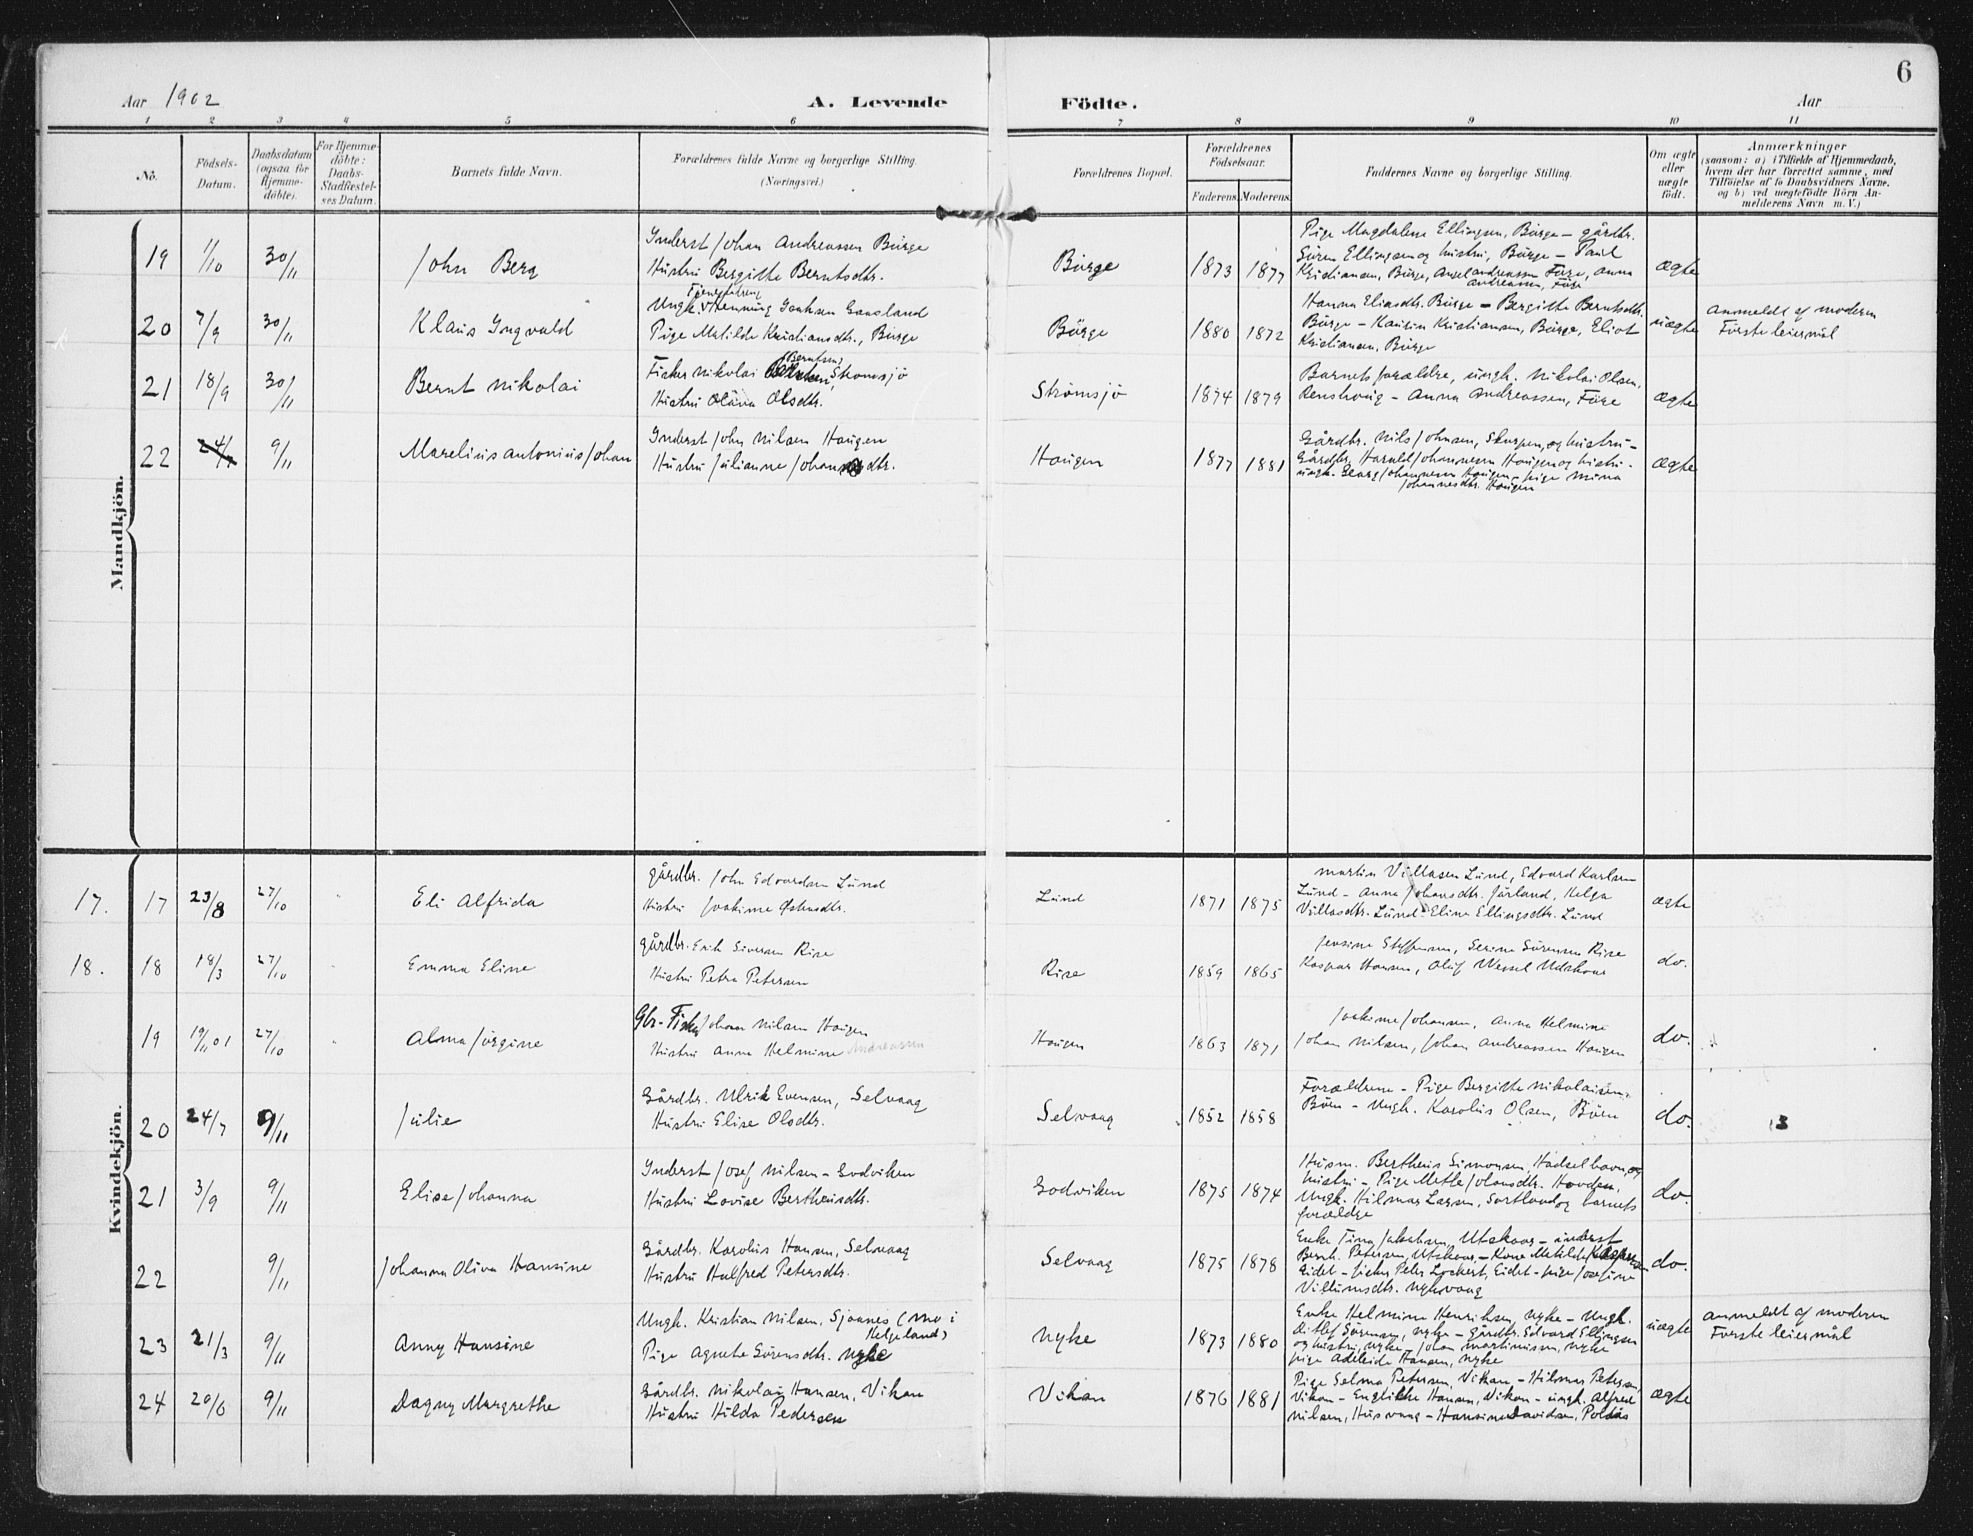 6
Aar 1902
A. Levende
Födte.
Aar
1 2 3 4 5 6 7 8 9 10 11
No.
Födsels-Datum.
Daabsdatum (ogsaa for Hjemme-döbte).
For Hjemme-döbte: Daabs-Stadfæstel-ses Datum.
Barnets fulde Navn.
Forældrenes fulde Navne og borgerlige Stilling. (Næringsvei.)
Forældrenes Bopæl.
Forældrenes Födselsaar.
Faderens. Moderens.
Faddernes Navne og borgerlige Stilling.
Om ægte eller uægte födt.
Anmærkninger
(saasom: a) i Tilfælde af Hjemmedaab,
hvem der har forrettet samme, med
Tilföielse af to Daabsvidners Navne.
og b) ved uægtefödte Börn An-
melderens Navn m. V.)
Mandkjön.
19 1/10 30/11 John Berg
Inderst Johan Andreassen Börge
Hustru Bergitte Berntsdtr.
Börge 1873 1877
Pige Magdalena Ellingsen, Börge – gårdbr.
Sören Ellingsen og hustru, Börge – Paul
Kristiansen, Börge, Andreassen Före, Anna
Andreassen, Före
ægte
20 7/9 30/11 Klaus Ingvald
Tjenestedreng
Ungk. Henning
Pige Matilde Kristiansdtr., Börge
Börge 1880 1872
Hanna Eliasdtr. Börge – Bergitte Berntsdtr.
Börge – Kristiansen, Börge, Eliot
Kristiansen, Börge
uægte
Anmeldt af moderen
Förste leiermål
21 18/9 30/11 Bernt Nikolai
Berntsen
Fisker Nikolai Strömsjö
Hustru Oláva Olsdtr.
Strömsjö 1874 1879
Barnets forældre, ungk. Nikolai Olsen,
– Anna Andreassen, Före
ægte
22 24/7 9/11 Marelius Antonius Johan
Inderst John Nilsen Haugen
Hustru Julianne dtr.
Haugen 1877 1881
Gårdbr. Nils Johnsen, Skorpen, og hustru –
Gårdbr. Harald Johannesen Haugen og hustru –
ungk. Georg Johannesen Haugen – pige Mina
Johannesdtr. Haugen
ægte
Kvindekjön.
17. 17 23/8 27/10 Eli Alfrida
gårdbr. John Edvardsen Lund
Hustru Joakime
Lund 1871 1875
Martin Villasen Lund, Edvard Karlsen
Lund – Anna Johansdtr. Jörland, Helga
Villasdtr. Lund – Eline Ellingsdtr. Lund
ægte
18. 18 18/3 27/10 Emma Eline
gårdbr. Erik Siversen Rise
Hustru Petra Petersen
Rise 1859 1865
Jensine Steffensen, Serine Sörensen Rise
Kaspar Hansen, Oluf Wessel Utskor
do.
19 19/11 01 27/10 Alma Jörgine
Gbr-Fisker Johan Nilsen Haugen
Hustru Anna Helmine Andreassen
Haugen 1863 1871
Joakime Johansen, Anna Helmine
Johan Nilsen, Johan Andreassen Haugen
do.
20 24/7 9/11 Julie
Gårdbr. Ulrik Evensen, Selvaag
Hustru Elise Olsdtr.
Selvaag 1852 1858
Forældrene – Pige Bergitte Nikolaisen,
Böen – Ungk. Karolius Olsen, Böen
do.
21 3/9 9/11 Elise Johanna
Inderst Josef Nilsen – Godviken
Hustru Lovise Bertheusdtr.
Godviken 1875 1874
Husm. Bertheus Simonsen, Hadselhavn, og
hustru – Pige Mette Johansdtr. Hovden,
Ungk. Hilmar Larsen, Sortland og barnets
forældre
do.
22 9/11 Johanna Oliva Hansine
Gårdbr. Karolius Hansen, Selvaag
Hustru Halfred Petersdtr.
Selvaag 1875 1878
Enke Tina Jakobsen, Utskor – inderst
Bernt. Petersen, Utskor – Kone Matilde
Eidet – fisker Peter Lockert, Eidet – pige Josefine
Villumsdtr. Nykvaag
do.
23 21/3 9/11 Anny Hansine
Ungk. Kristian Nilsen, Sjonnes (Mo i
Helgeland)
Pige Agnete Sörensdtr. Nyke
Nyke 1873 1880
Enke Helmine Henriksen, Nyke – Ungk.
Ditlef Sörensen, Nyke – Gårdbr. Edvard Ellingsen
og hustru, Nyke – Johan Martinussen, Nyke
pige Adeleide Hansen, Nyke
uægte
Anmeldt af moderen
Förste leiermål
24 20/6 9/11 Dagny Margrethe
Gårdbr. Nikolai Hansen, Vikan
Hustru Hilda Pedersen
Vikan 1876 1881
Pige Selma Petersen, Vikan – Hilmar Petersen,
Vikan – Hansen, Vikan – ungk. Alfred
Nilsen, Husvaag – Hansine Davidsen,
ægte